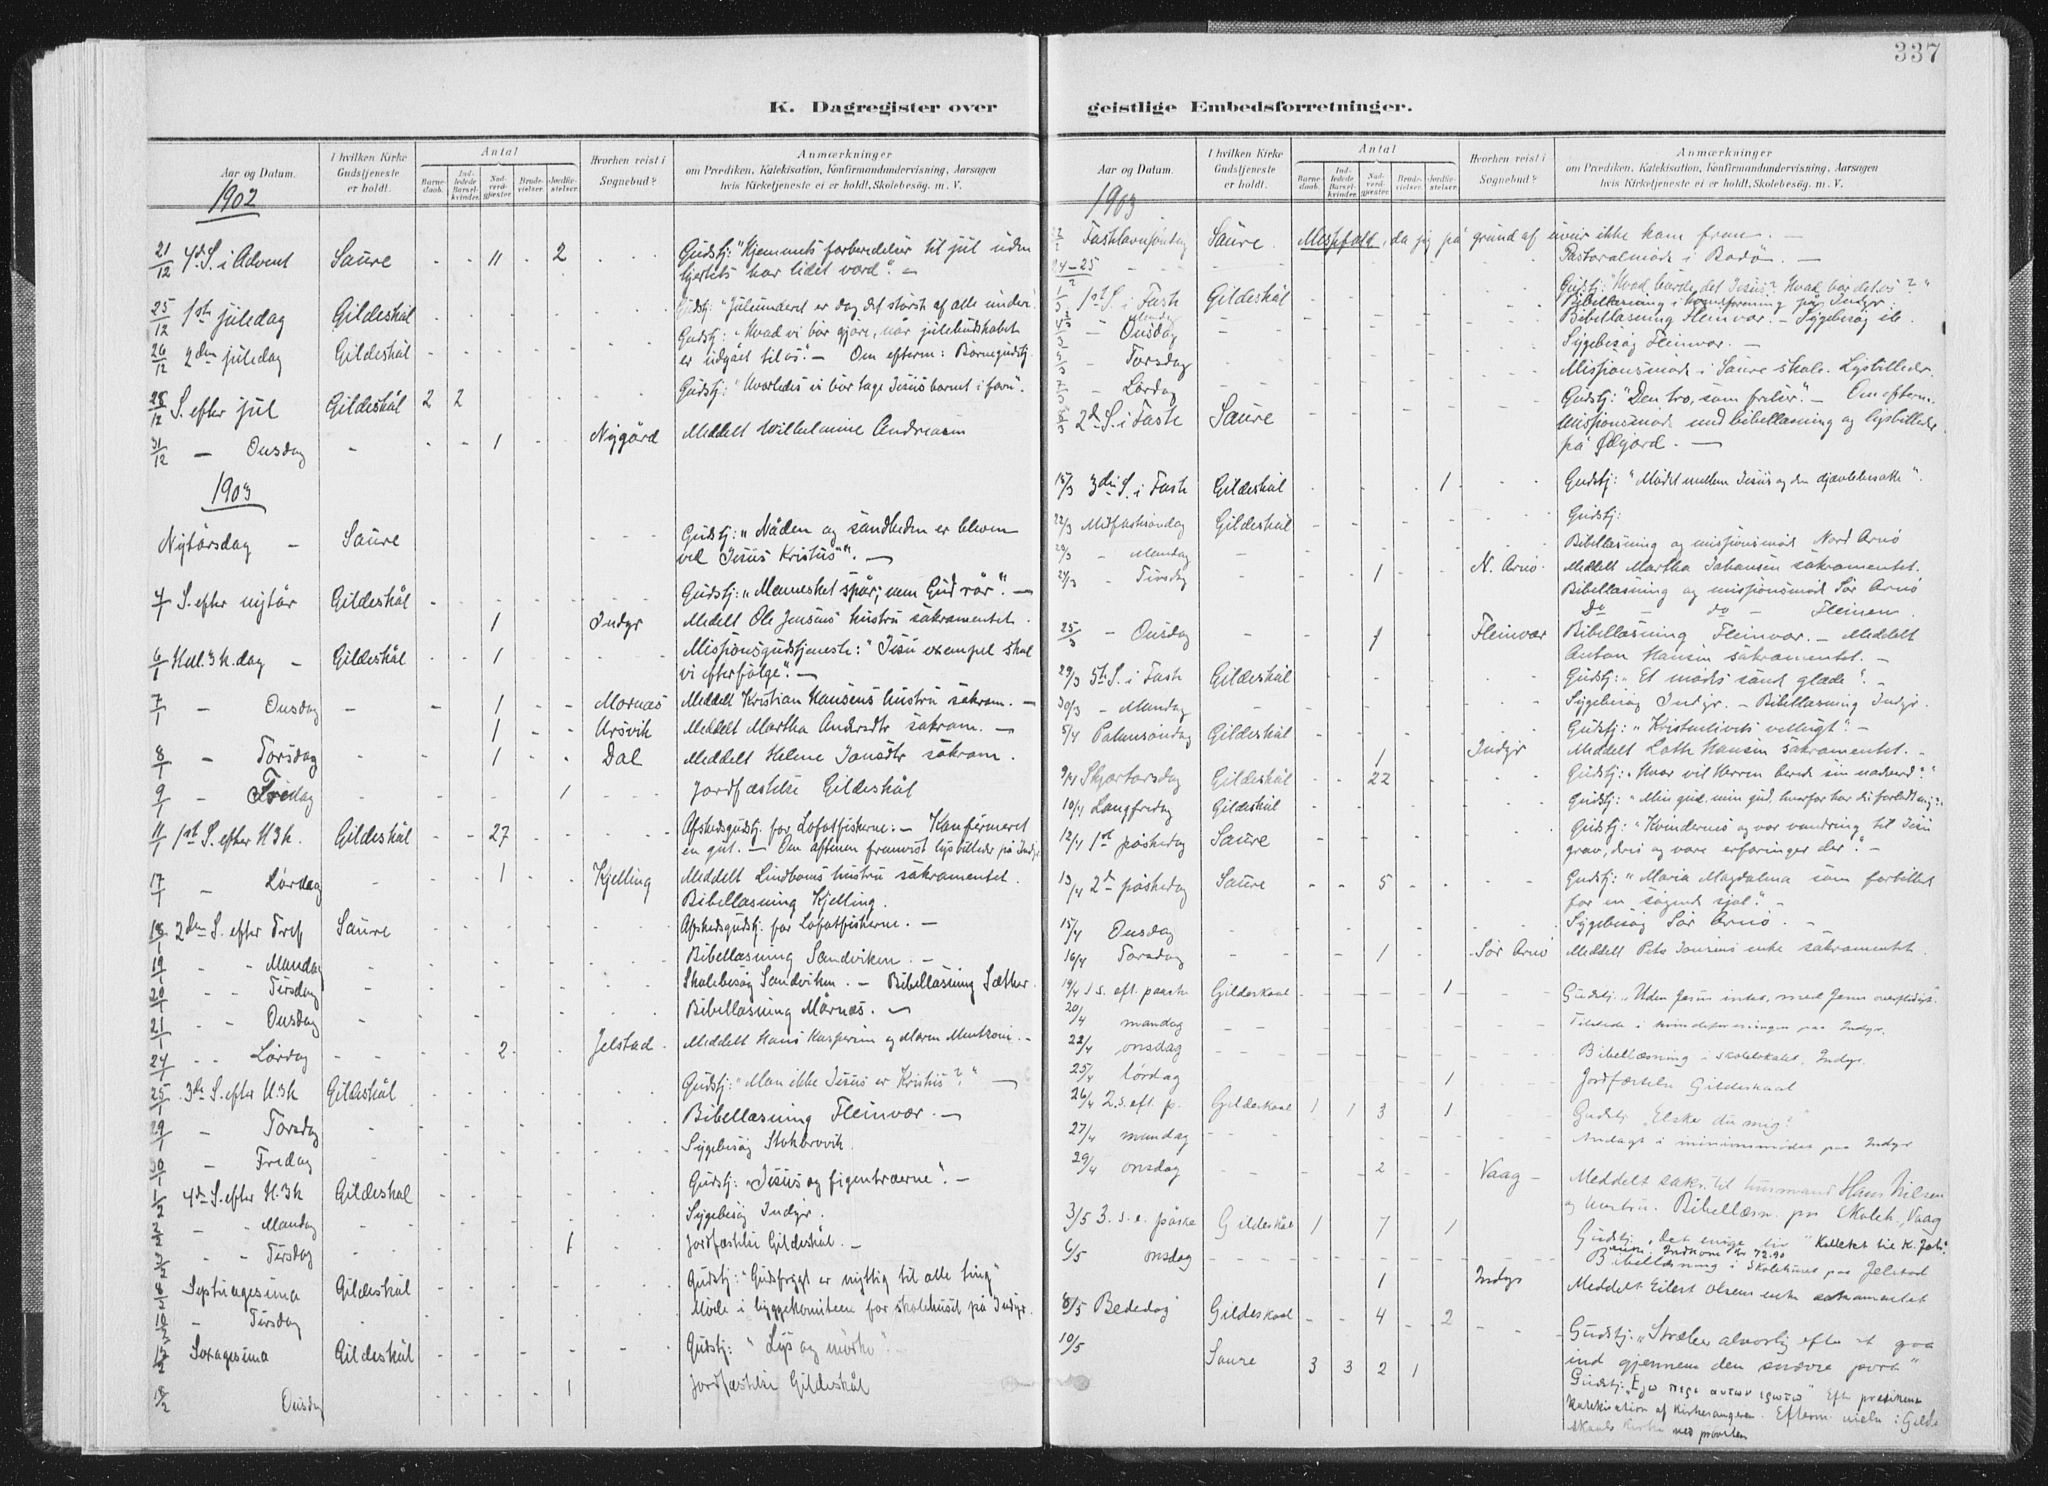 337
K. Dagregister over geistlige Embedsforretninger.
Aar og Datum.
I hvilken Kirke Gudstjeneste er holdt.
Antal
Barnedaab.
Indledede Barselkvinder.
Nadverdgjester.
Brudevielser.
Jordfæstelser.
Hvorhen reist i Sognebud?
Anmærkninger
om Prædiken, Katekisation, Konfirmandundervisning, Aarsagen
hvis Kirketjeneste ei er holdt, Skolebesøg. m. V.
1902
21/12 4de S. i Advent Saure - - 11 - 2 Gudstj: "Hjemmets forberedelser til jul uden
hjertets har lidet værd". -
25/12 1ste juledag Gildeskål Gudstj: "Juleunderet er dog det störste af alle under."
26/12 2den juledag Gildeskål Gudstj: "Hvad vi bör gjöre, når julebudskabet
er udgået til os". - Om efterm: Börnegudstj.
28/12 S. efter jul Gildeskål 2 2 Gudstj: "Hvorledes vi bör tage Jesusbarnet i favn".
31/12 - Onsdag - - - 1 - Nygård Meddelt Wilhelmine Andreasen
1903
Nytårsdag - Saure Gudstj: "Nåden og sandheden er bleven
ved Jesus Kristus". -
4/1 S. efter nytår Gildeskål Gudstj: "Mennesket spår, men Gud rår". -
1 Indyr Meddelt Ole Jensens hustru sakramentet.
6/1 Hell. 3 k. dag - Gildeskål - - 1 Missjonsgudstjeneste: "Jesu exempel skal
vi efterfölge". -
7/1 - Onsdag - - - 1 - - Mornæs Meddelt Kristian Hansens hustru sakram. -
1 - - Årsvik Meddelt Martha Andersdtr sakram. -
8/1 - Torsdag - - - 1 - - Dal Meddelt Helene Jonsdtr sakram.
9/1 - Fredag - - - - - 1 Jordfæstelse Gildeskål
11/1 1ste S. efter H3k. Gildeskål - - 27 - - Afskedsgudstj. for Lofotfiskerne. - Konfirmeret
en gut. - Om aftenen fremvist lysbilleder på Indyr
17/1 - Lördag - - - 1 - - Kjelling Meddelt Lindboms hustru sakramentet.
Bibellæsning Kjelling.
18/1 2den S. efter Tref Saure Afskedsgudstj. for Lofotfiskerne. -
19/1 - - Mandag Bibellæsning Sandviken. -
20/1 - - Tirsdag Skolebesög Sandviken. - Bibellæsning Sæther.
21/1 - - Onsdag Bibellæsning Mårnæs. -
24/1 - - Lördag - - - 2 - - Jelstad Meddelt Hans Kaspersen og Maren Mentzoni. -
25/1 3die S. efter H.3k Gildeskål Gudstj: "Mon ikke Jesus er Kristus?" -
29/1 - Torsdag Bibellæsning Fleinvær. -
30/1 - Fredag Sygebesög
1/2 4de S. efter H.3k Gildeskål Gudstj: "Jesus og figentræerne". -
2/2 - - Mandag Sygebesög Indyr.
3/2 - - Tirsdag - - - - - 1 Jordfæstelse Gildeskål. -
8/2 Septuagesima Gildeskål Gudstj: "Gudsfrygt er nyttig til alle ting"
10/2 - Tirsdag Möde i byggekomiteen for skolehuset på Indyr.
15/2 Sexagesima Gildeskål Gudstj: "Lys og mörke"
18/2 Onsdag - - - - 1 Jordfæstelse Gildeskål
1903
22/2 Fastelavnsöndag Saure Messefald, da jeg på grund af uveir ikke kom frem. -
24-25/2 Pastoralmöde i Bodö. -
1/3 1ste S. i Faste Gildeskål Gudstj: "Hvad burde det Jesus? Hvad bör det os?"
Mandag Bibellæsning i kvindforening på Indyr.
4/3 - Onsdag Bibellæsning Fleinvær. - Sygebesög ib.
5/3 - Torsdag Sygebesög Fleinvær. -
7/3 - Lördag Missjonsmöde i Saure skole. Lysbilleder.
8/3 2den S. i Faste Saure Gudstj: "Den tro, som frelser". - Om efterm.
missjonsmöde med bibellæsning og lysbilleder
på Öigård. -
15/3 3die S. i Faste Gildeskål 1 Gudstj: "Mödet mellem Jesus og den djævlebesatte".
22/3 Midfastsöndag Gildeskål Gudstj:
23/3 - Mandag Bibellæsning og missjonsmöde Nord Arnö
24/3 - Tirsdag 1 N. Arnö. Meddelt Martha Johansen sakramentet.
Bibellæsning og missjonsmöde Sör Arnö
Do - do - Fleinen.
25/3 - Onsdag 1 Fleinvær Bibellæsning Fleinvær. - Meddelt
Anton Hansen sakramentet. -
29/3 5te S. i Faste Gildeskål Gudstj: "Et mödes sande glæde". -
30/3 - Mandag Sygebesög Indyr. - Bibellæsning Indyr.
5/4 Palmesöndag Gildeskål Gudstj: "Kristenlivets velleugt". -
1 Indyr Meddelt Loth Hansen sakramentet. -
9/4 Skjærtorsdag Gildeskål - - 22 Gudstj: "Hvor vil Herren berede sin nadverd?"
10/4 Langfredag Gildeskål Gudstj: "Min gud, min gud, hvorfor har du forladt mig?"
12/4 1ste påskedag Saure Gudstj: "Kvindernes og vor vandring til Jesu
grav, deres og vore erfaringer der". -
13/4 2den påskedag Saure - - 5 Gudstj: "Maria Magdalena som forbillede
for en sögende sjæl". -
15/4 Onsdag Sygebesög Sör Arnö. -
16/4 Torsdag 1 Sör Arnö Meddelt Peter Jonsens enke sakramentet.
19/4 1 s. eft. paaske Gildeskaal 1 Gudstj. "Uden Jesus intet, med Jesus overflödigt".
20/4 mandag Tilstede i kvindeforeningen paa Indyr.
22/4 onsdag Bibellæsning i skolelokalet, Indyr.
25/4 lördag 1 Jordfæstelse Gildeskaal
26/4 2. s. eft. p. Gildeskaal 1 1 3 1 Gudstj "Elsker du mig?"
27/4 mandag Andagt i missionsmödet paa Indyr
29/4 onsdag 2 Vaag Meddelt sakr. til husmand Hans Nilsen
og hustru. Bibellæsn. paa Skoleh., Vaag
3/5 3. s. e. påske Gildeskål 1 7 1 Gudstj. "Det evige liv" Kollekt til K.
6/5 onsdag Bibellæsning i Skolehuset paa Jelstad
1 Indyr Meddelt Eilert Olsens enke sakramentet
8/5 Bededag Gildeskaal 4 2 Gudstj: "Stræber alvorlig efter at gaa
ind gjennem den snævre port"
10/5 Saure 3 3 2 1 Gudstj: "Εγω περι αυτων ερωτω" Efter prædikenen
katekisation af kirkesangeren. Efterm. vielse i Gilde
skaals kirke ved provsten